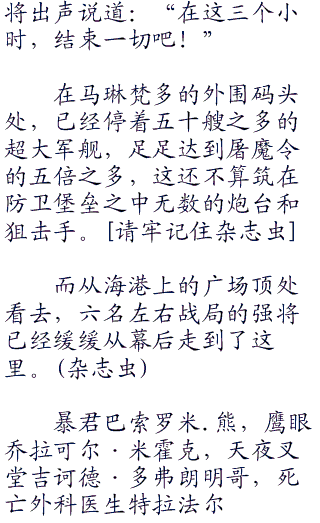 将出声说道：“在这三个小
时，结束一切吧！”
在马琳梵多的外围码头
处，已经停着五十艘之多的
超大军舰，足足达到屠魔令
的五倍之多，这还不算筑在
防卫堡垒之中无数的炮台和
狙击手。[请牢记住杂志虫]
而从海港上的广场顶处
看去，六名左右战局的强将
已经缓缓从幕后走到了这
里。(杂志虫)
暴君巴索罗米.熊，鹰眼
乔拉可尔·米霍克，天夜叉
堂吉诃德·多弗朗明哥，死
亡外科医生特拉法尔